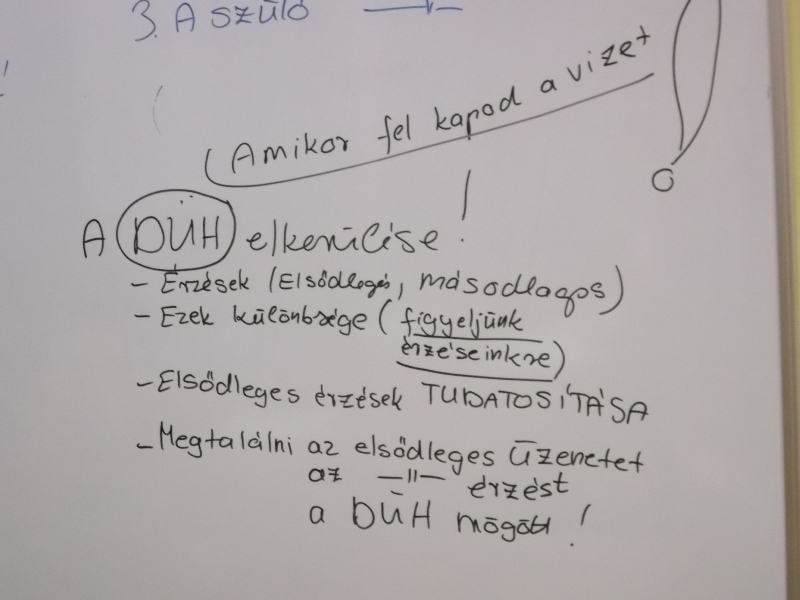 3. A szülő
!
(Amikor fel kapod a vizet
A DÜH elkerülése!
- Érzések (Elsődleges, másodlagos)
- Ezek különbsége (figyeljünk
érzéseinkre)
- Elsődleges érzések TUDATOSÍTÁSA
- Megtalálni az elsődleges üzenetet
az —||— érzést
a DÜH mögött!